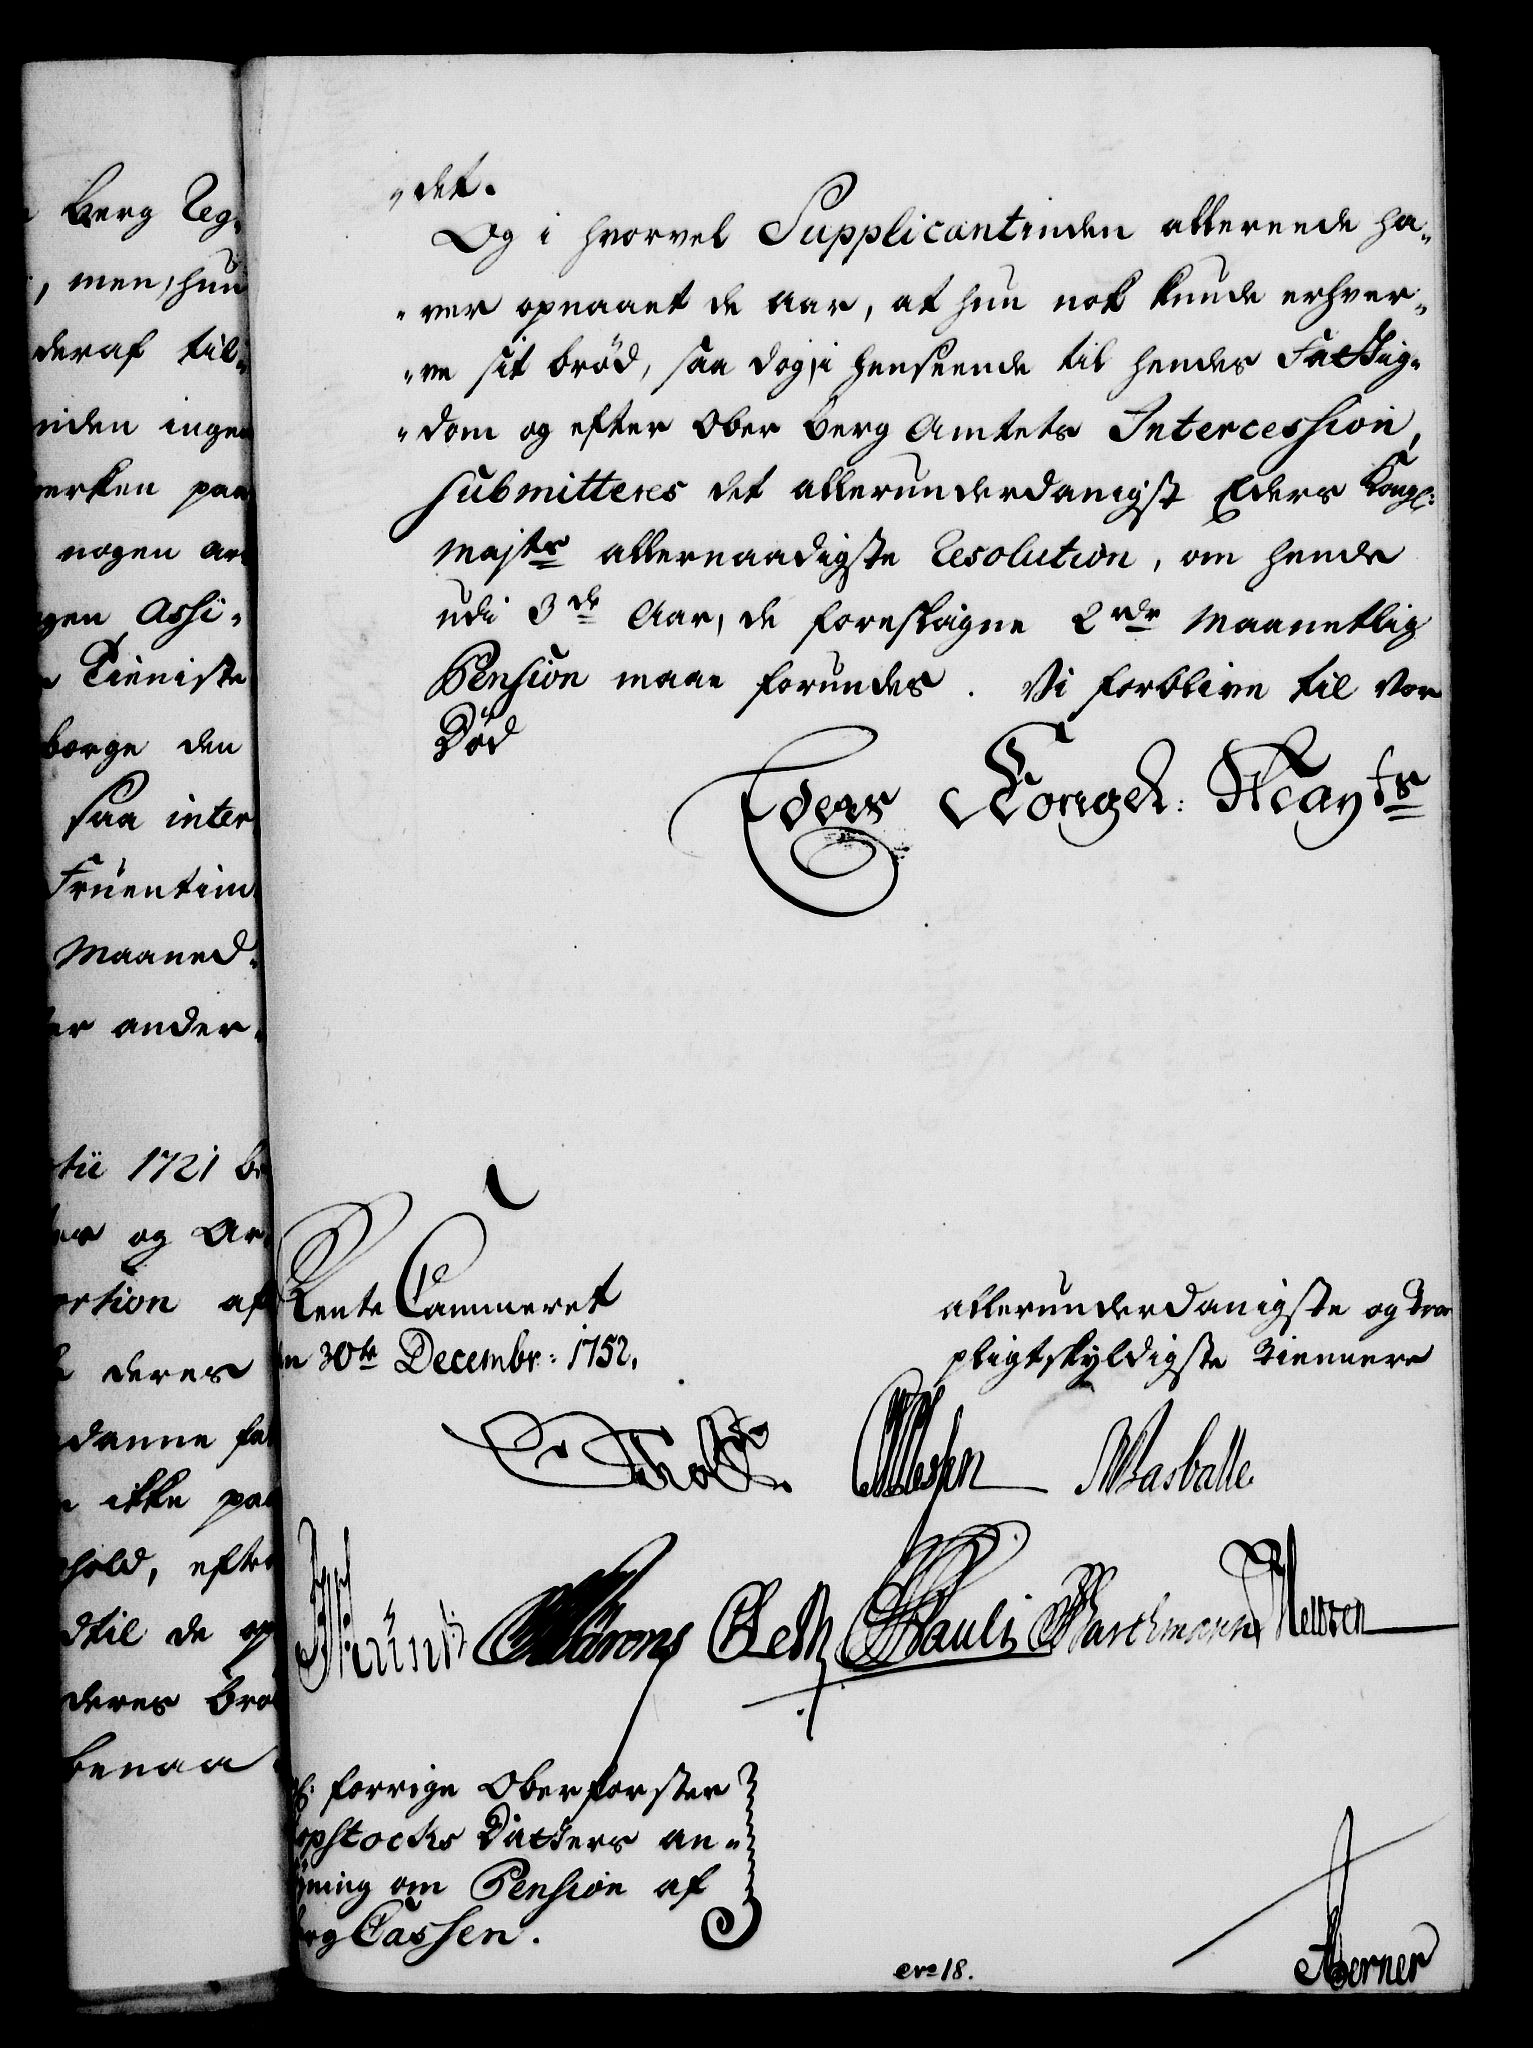 Berg Reg-
, men, hun
deraf til-
inden ingen
werken paa
nogen an
gen Assi-
Tieniste
borge den
saa inter
Fruentim
Maaned-
er ander-
tii 1721 be
og Ar
ortion af
deres
danne
ikke paa
hold, efter
dtil de op
deres brø
benaa
"det.
Og i hvorvel Supplicantinden allereede ha-
"ver opnaaet de Aar, at hun nok kunde erhver-
"ve sit brød, saa dog, i henseende til hendes Fattig-
"dom og efter Ober Berg Amtets Intercession,
submitteres det allerunderdanigst Eders Kongl:
Majts allernaadigste Resolution, om hende
udi 3de Aar, de foreslagne 2 rdr Maanetlig
Pension maae forundes. Vi forblive til vor
Død
Eders Kongel: Mayts
Rente Cammeret
en 30te Decembr: 1752.
allerunderdanigste og troe
pligtskyldigste tiennere
Holst
Wasballe
Pauli Barthmann Neuren
forrige Oberforster
opstocks Datters an-
ning om Pension af
erg Cassen.
No 18.
Berner